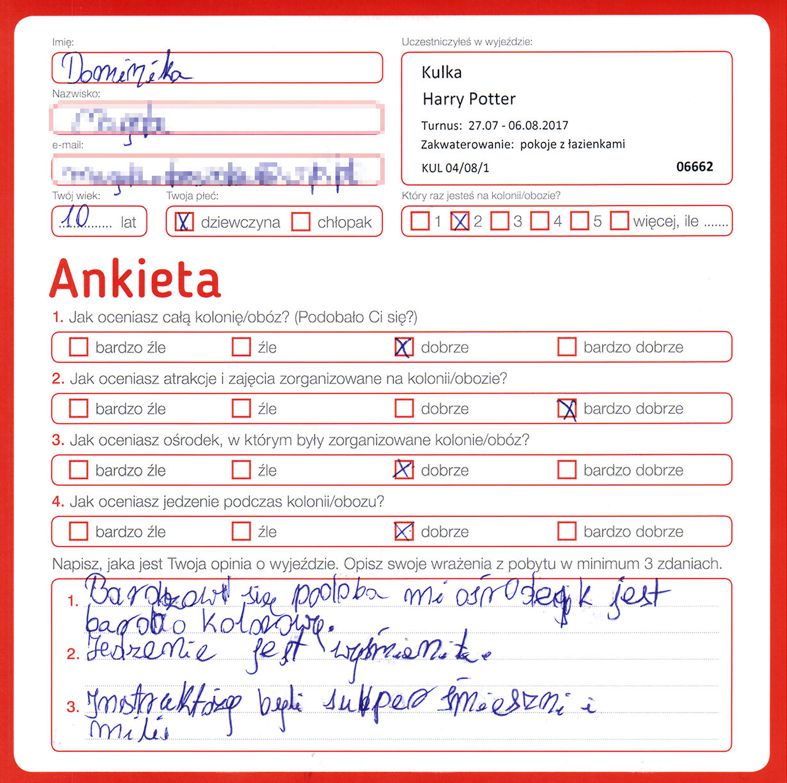 Imię:
Dominika
Nazwisko:
e-mail:
Twój wiek:
10 lat
Twoja płeć:
dziewczyna chłopak
Uczestniczyłeś w wyjeździe:
Kulka
Harry Potter
Turnus: 27.07 - 06.08.2017
Zakwaterowanie: pokoje z łazienkami
KUL 04/08/1 06662
Który raz jesteś na kolonii/obozie?
1 2 3 4 5 więcej, ile .......
Ankieta
1. Jak oceniasz całą kolonię/obóz? (Podobało Ci się?)
bardzo źle źle dobrze bardzo dobrze
2. Jak oceniasz atrakcje i zajęcia zorganizowane na kolonii/obozie?
bardzo źle źle dobrze bardzo dobrze
3. Jak oceniasz ośrodek, w którym były zorganizowane kolonie/obóz?
bardzo źle źle dobrze bardzo dobrze
4. Jak oceniasz jedzenie podczas kolonii/obozu?
bardzo źle źle dobrze bardzo dobrze
Napisz, jaka jest Twoja opinia o wyjeździe. Opisz swoje wrażenia z pobytu w minimum 3 zdaniach.
1. się podoba mi ośrodek jest
kolorowy.
2. Jedzenie jest wyśmienite.
3. byli super śmieszni i
mili